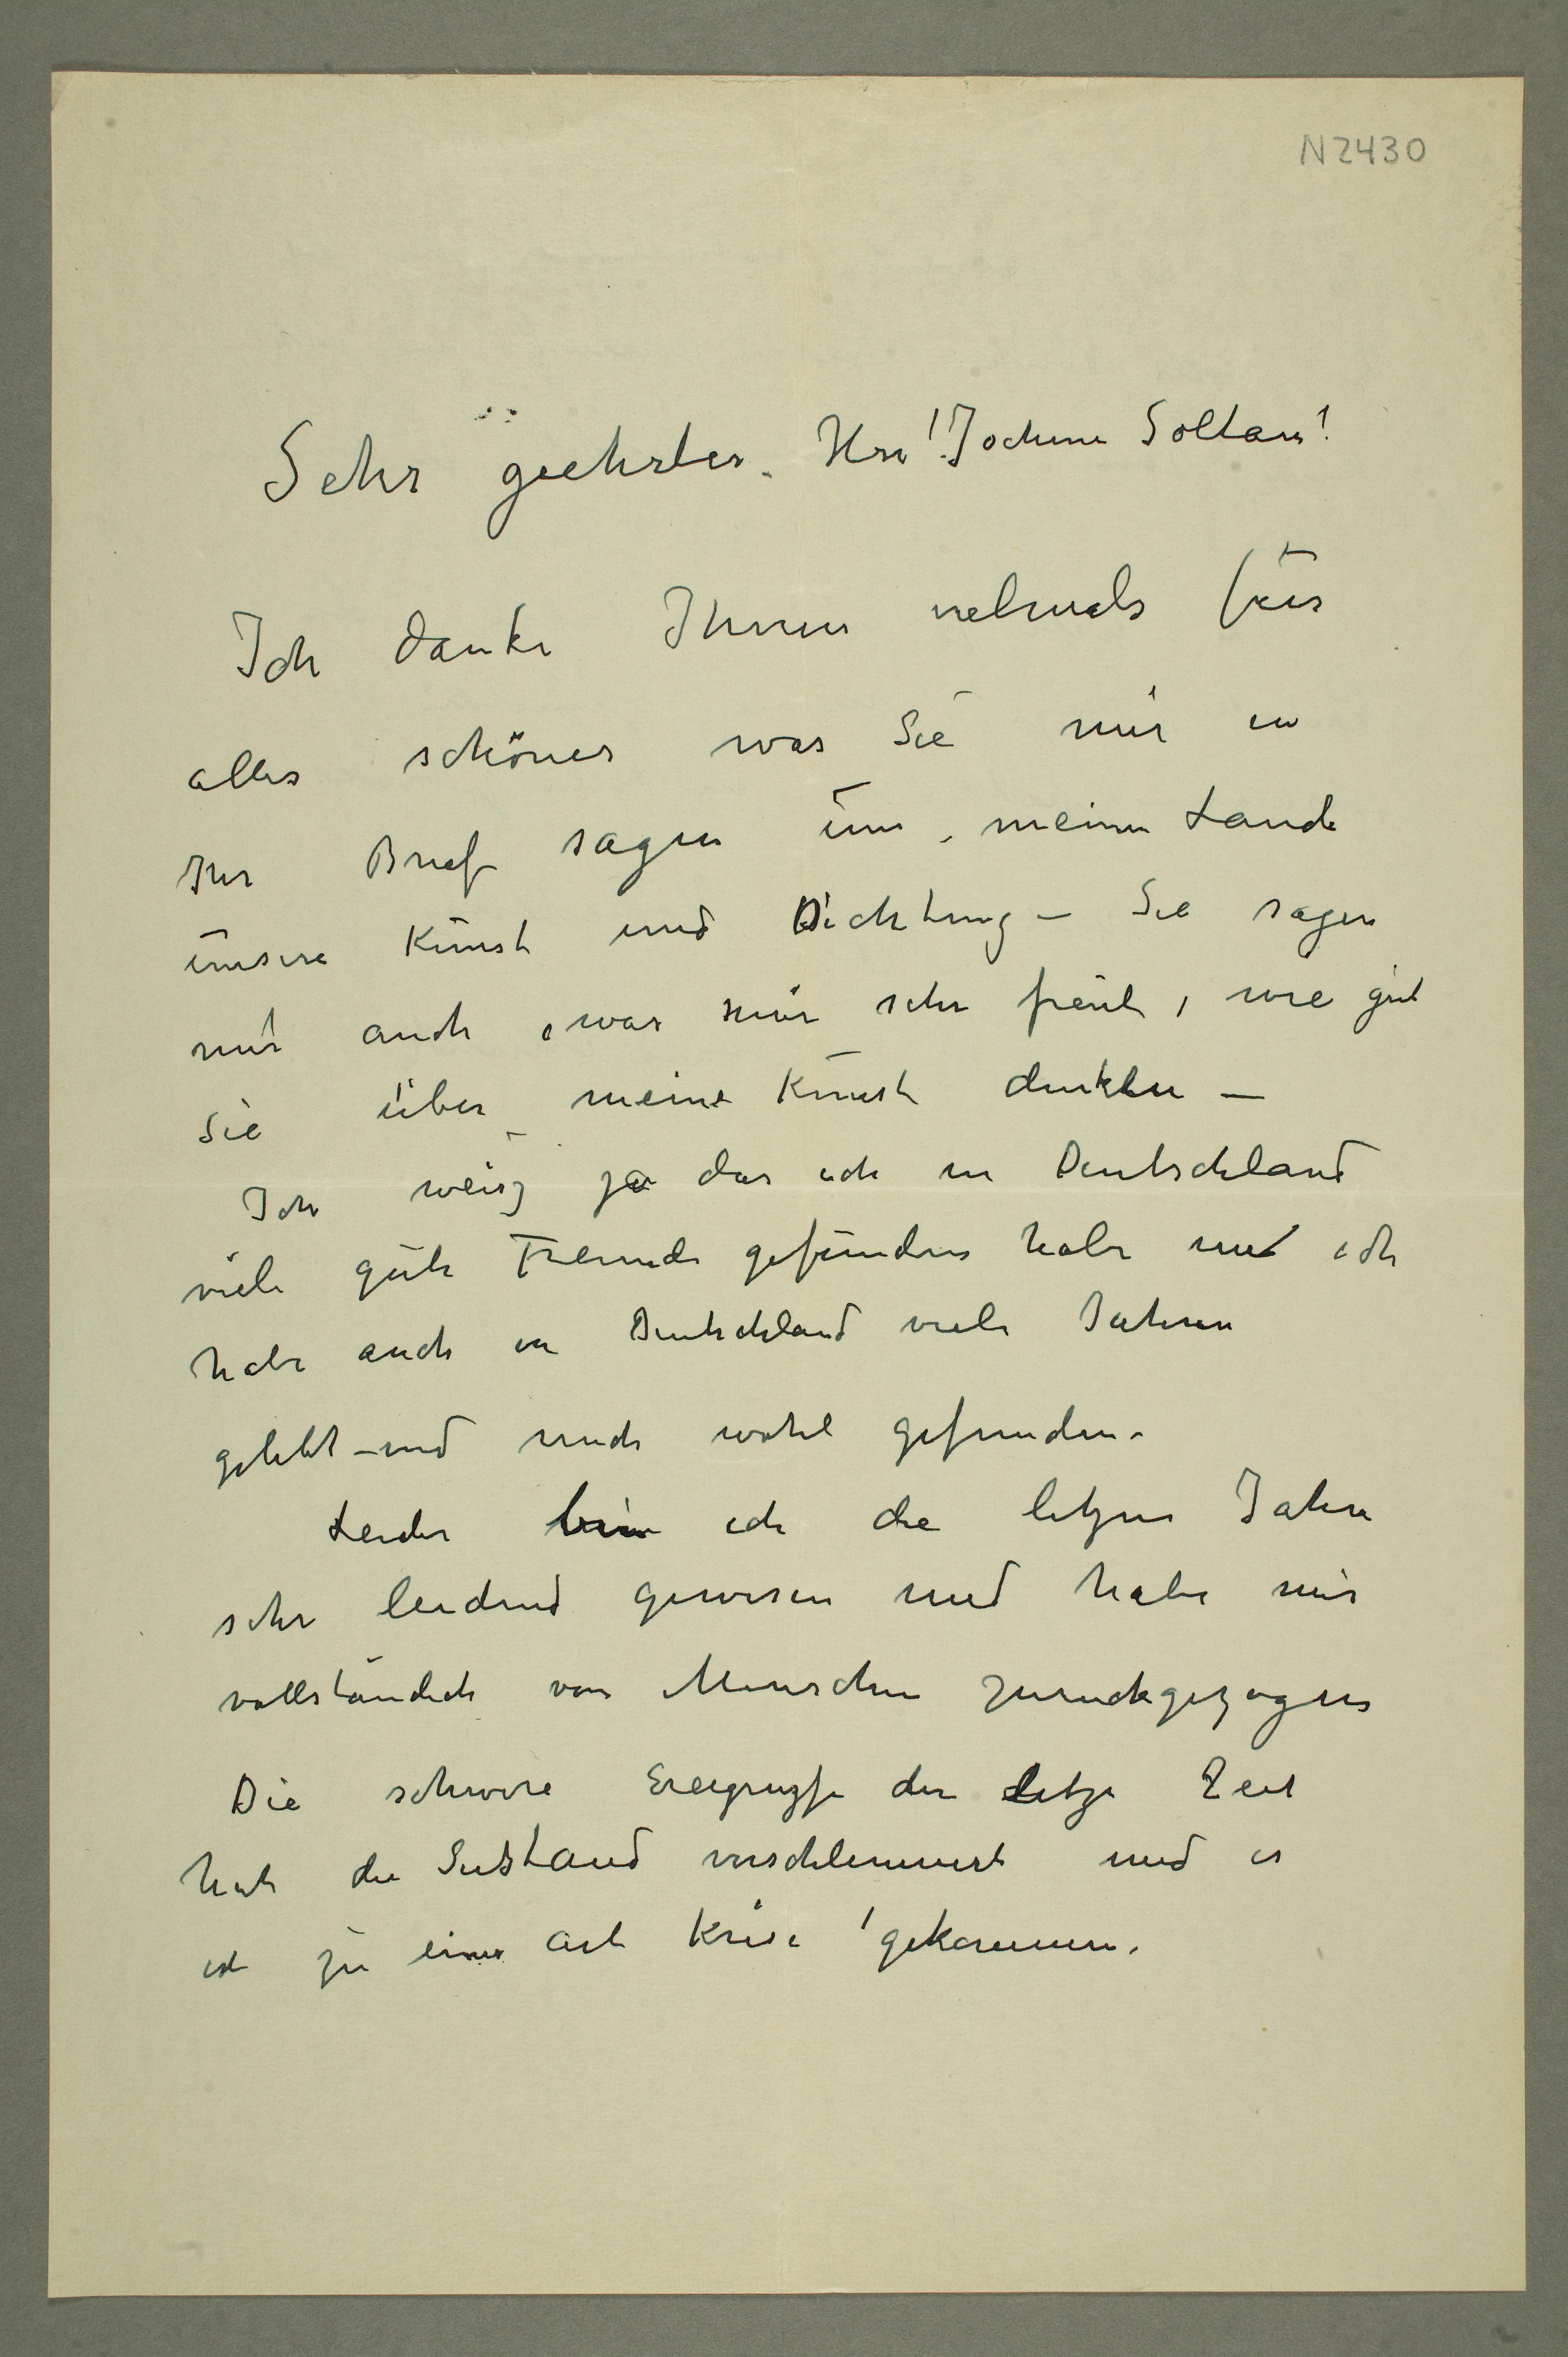 N2430
Sehr geehrter Herr! Jochen Soltau!
Ich danke Ihnen vielmals für
alles schönes was Sie mir in
Ihr Brief sagen um meinen Lande
unsere Kunst und Dichtung – Sie sagen
mir auch, was mir sehr freut, wie gut
Sie über meine Kunst denkten –
Ich weisz ja das ich in Deutschland
viele gute Freunde gefunden habe und ich
habe auch in Deutschland viele Jahren
gelebt – und mich wohl gefunden.
Leider bin ich die letzen Jahre
sehr leidend gewesen und habe mir
vollständich von Menschen zurückgezogen
Die schwere Ereignisse der letze Zeit
hat die Zustand verschlimmert und es
ist zu eine art Krise gekommen.